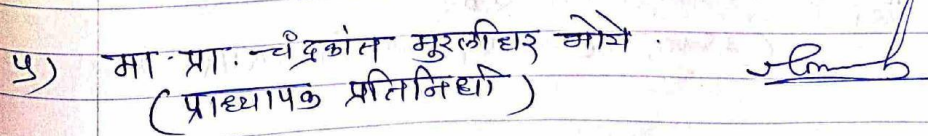 ५) मा. प्रा. चंद्रकांत मुरलीधर भोगे.
(प्राध्यापक प्रतिनिधी)